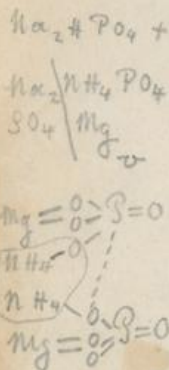 Na₂HPO₄ +
Na₂/NH₄ PO₄
SO₄ Mg
Mg=O O>P=O
NH₄-O
NH₄ O
Mg=O O>P=O